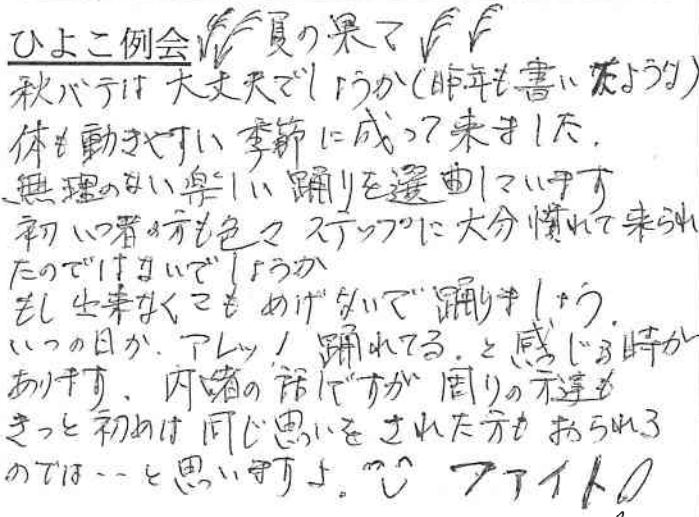 ひよこ例会 夏の果て
秋バテは大丈夫でしょうか(昨年も書いたような)
体も動きやすい季節に成って来ました.
無理のない楽しい踊りを選曲しています
初いつ者の方も色々ステップに大分慣れて来られ
たのではないでしょうか
もし出来なくてもめげないで踊りましょう.
いつの日か.アレッ!踊れてる.と感じる時が
あります.内緒の話しですが周りの方達も
きっと初めは同じ思いをされた方もおられる
のでは・・と思いますよ. ファイト!